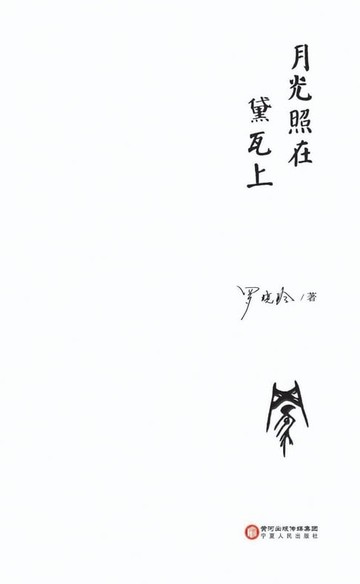 月光照在
黛瓦上
罗晓玲 / 著
黄河出版传媒集团
宁夏人民出版社